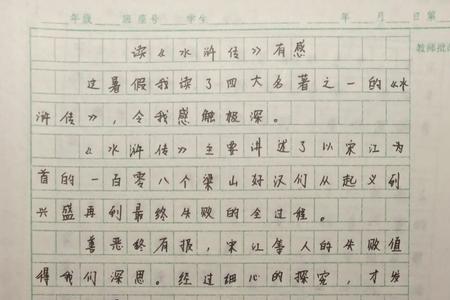 年级 班座号 学生 年 月 日第
教师批
读《水浒传》有感
过暑假我读了四大名著之一的《水
浒传》,令我感触极深。
《水浒传》主要讲述了以宋江为
首的一百零八个梁山好汉们从起义到
兴盛再到最终失败的全过程。
善恶终有报,宋江等人的失败值
得我们深思。经过细心的探究,才发